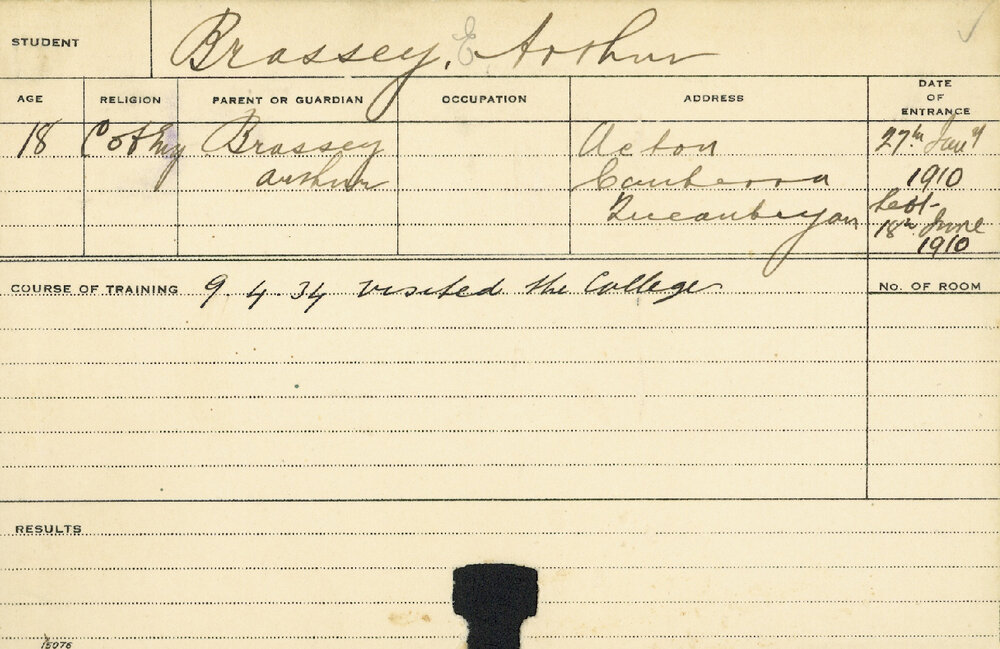 STUDENT Brassey, E. Arthur
AGE RELIGION PARENT OR GUARDIAN OCCUPATION ADDRESS DATE OF ENTRANCE
18 C of Eng Brassey Acton 27th Jany
Arthur Canberra 1910
Queanbeyan Left-
18th June
1910
COURSE OF TRAINING 9.4.34 visited the College No. OF ROOM
RESULTS
15076